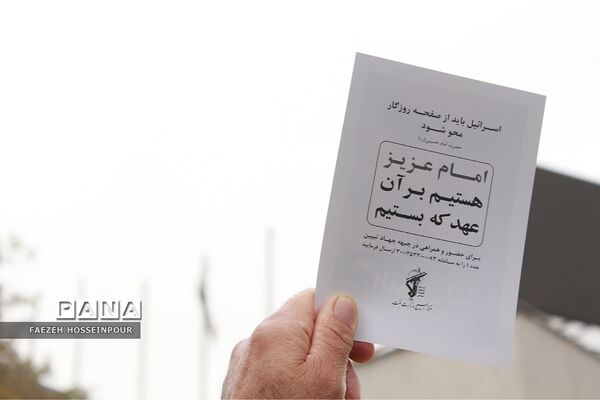 اسرائیل باید از صفحه روزگار
محو شود
حضرت امام خمینی(ره)
امام عزیز
هستیم بر آن
عهد که بستیم
برای حضور و همراهی در جبهه جهاد تبیین
عدد ۱ را به سامانه ۳۰۰۰۴۵۳۳۰۰۰۰۸۳ ارسال فرمایید
PANA
FAEZEH HOSSEINPOUR